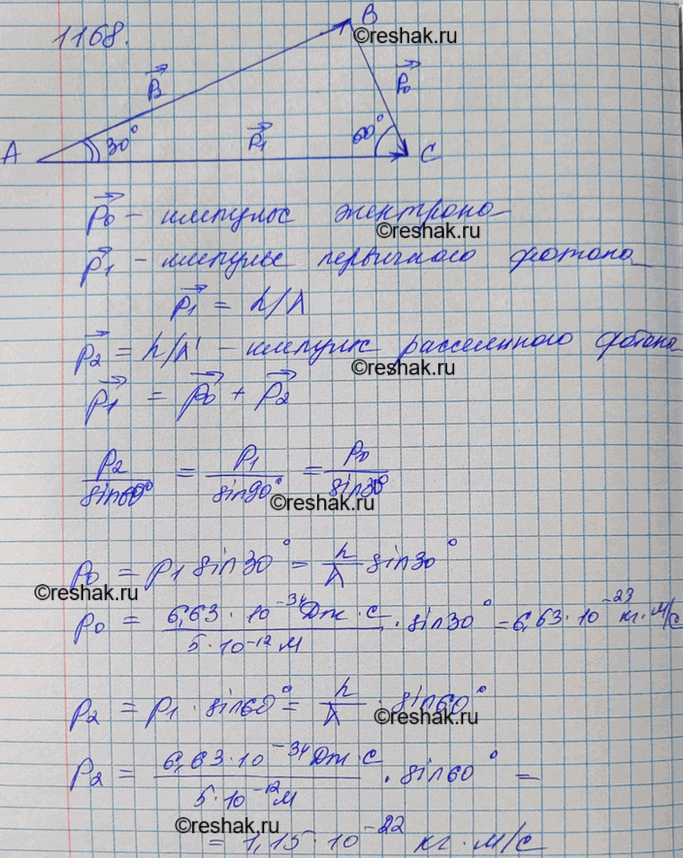 1168.
B
©reshak.ru
P⃗2
P⃗0
A 30° P⃗1 60° C
P⃗0 - импульс электрона
©reshak.ru
P⃗1 - импульс первичного фотона
P⃗1 = h/λ
P⃗2 = h/λ' - импульс рассеянного фотона
©reshak.ru
P⃗1 = P⃗0 + P⃗2
P2/sin60° = P1/sin90° = P0/sin30°
©reshak.ru
P0 = P1 sin30° = h/λ sin30°
©reshak.ru
P0 = 6,63·10⁻³⁴ Дж·с / 5·10⁻¹² м · sin30° = 6,63·10⁻²³ кг·м/с
P2 = P1 · sin60° = h/λ · sin60°
©reshak.ru
P2 = 6,63·10⁻³⁴ Дж·с / 5·10⁻¹² м · sin60° =
©reshak.ru
= 1,15·10⁻²² кг·м/с